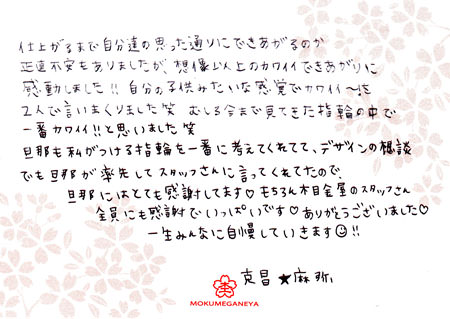 仕上がるまで自分達の思った通りにできあがるのか
正直不安もありましたが、想像以上のカワイイできあがりに
感動しました!! 自分の子供みたいな感覚でカワイイ〜!!と
2人で言いまくりました笑 むしろ今まで見てきた指輪の中で
一番カワイイ!!と思いました笑
旦那も私がつける指輪を一番に考えてくれてて、デザインの相談
でも旦那が率先してスタッフさんに言ってくれてたので、
旦那にはとても感謝してます♡もちろん木目金屋のスタッフさん
全員にも感謝でいっぱいです♡ありがとうございました♡
一生みんなに自慢していきます☺!!
克昌 ★ 麻弥
MOKUMEGANEYA